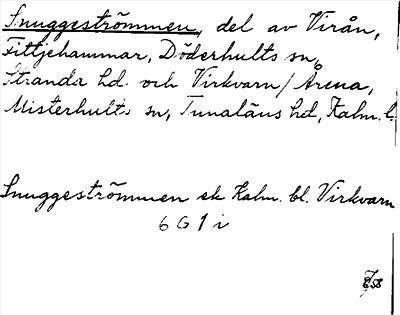 Snuggeströmmen, del av Virån,
Fittjehammar, Döderhults sn,
Stranda hd. och Virkvarn/Arena,
Misterhults sn, Tunaläns hd, Kalm. l.
Snuggeströmmen ek Kalm. bl. Virkvarn
6 G 1 i